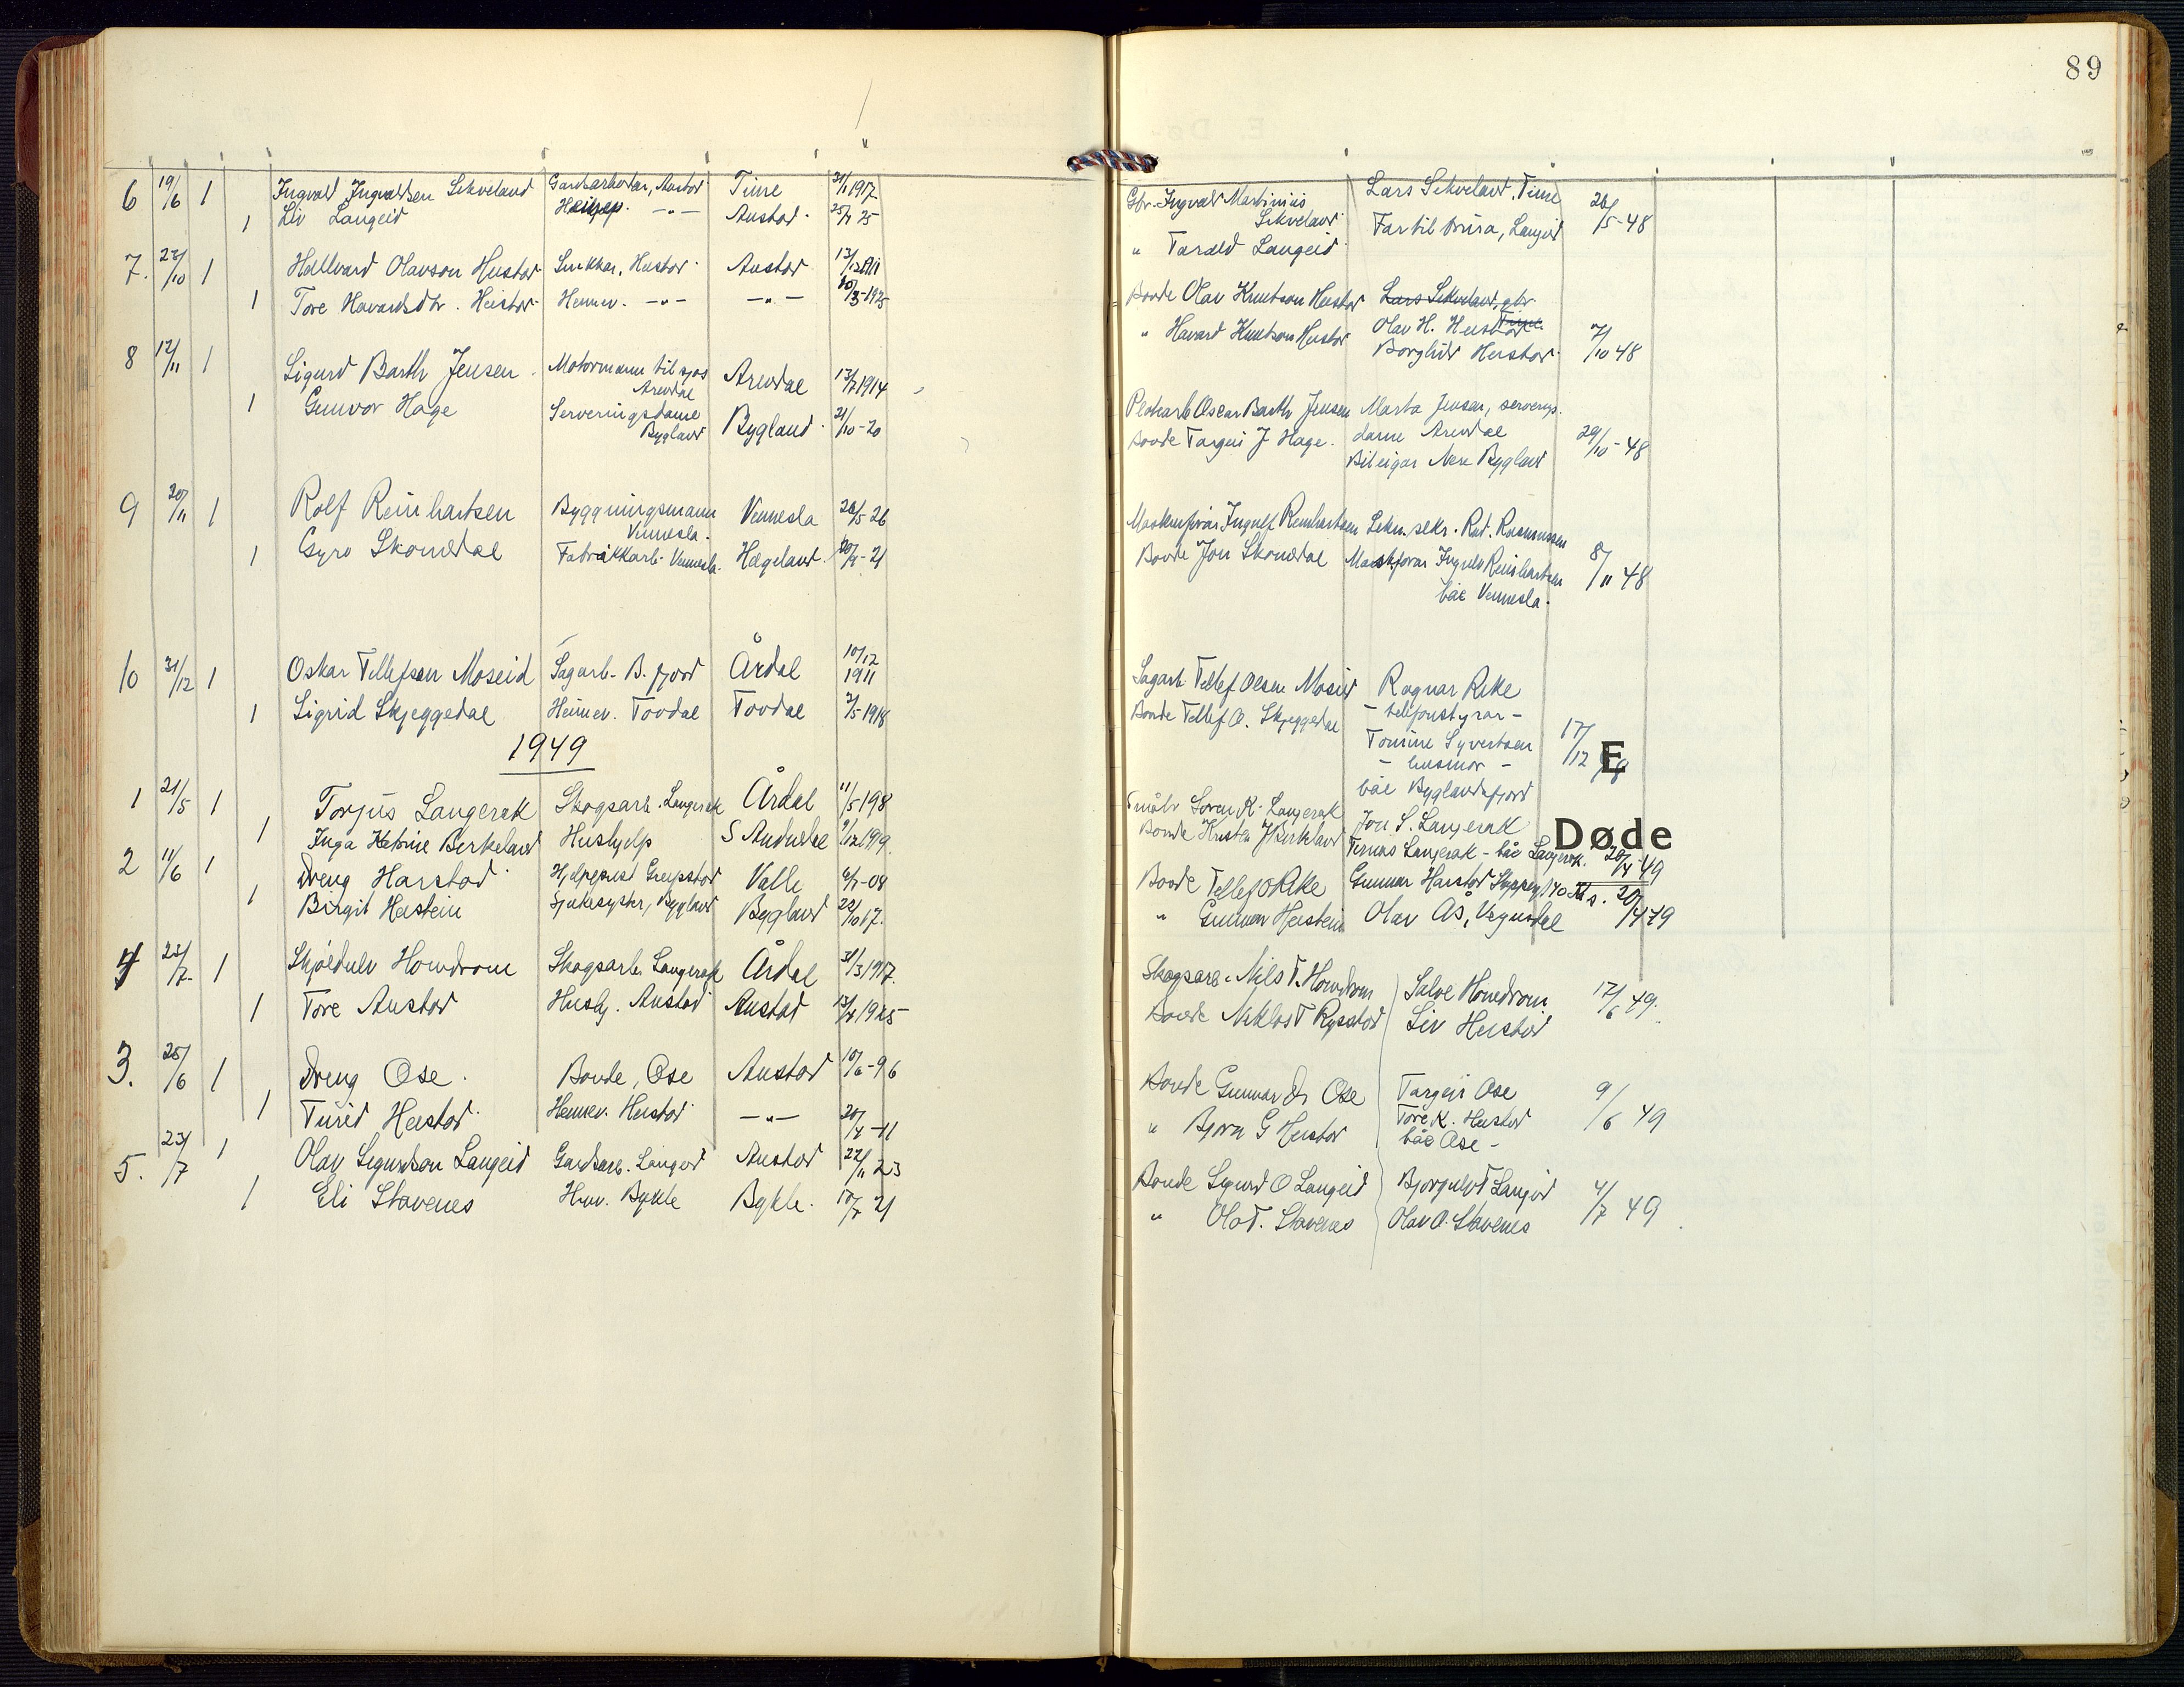 89
6 19/6 1 Ingvald Ingvaldsen Sikveland Gardsarbeidar, Austad Time 21/1 1917
1 Liv Langeid —"— Austad 25/7 25
7. 22/10 1 Hallvard Olavson Heistad Snikkar, Heistad Austad 13/12 1911
1 Tore Havardsdtr. Heistad Heimev. —"— —"— 20/3-1925
8 12/11 1 Sigurd Barth Jensen Motormann til sjøs Arendal Arendal 13/7 1914
1 Gunvor Hage Serveringsdame Bygland Bygland 21/10-20
9 20/11 1 Rolf Reinhartsen Byggningsmann Vennesla. Vennesla 26/5 26
1 Gyro Skomedal Fabrikkarb. Vennesla. Hægeland 21
10 31/12 1 Oskar Tellefsen Moseid Sagarb. B. fjord Årdal 10/12 1911
1 Sigrid Skjeggedal Heimev. Tovdal Tovdal 2/5 1918
1949
1 21/5 1 Torjus Langerak Skogsarb. Langerak Årdal 11/5-198
1 Inga Katrine Berkeland Hushjelp S Audnedal 9/12 1919.
2 11/6 1 Dreng Harstad Hjelpeprest Greipstad Valle 08
1 Birgit Heistein Sjukesyster, Bygland Bygland 17.
4 23/7 1 Skjoldulv Homdrom Skogsarb. Langerak Årdal 31/3 1917.
1 Tore Austad Hushj. Austad Austad 1925
3. 25/6 1 Dreng Ose Bonde, Ose Austad 10/6-96
1 Turid Heistad Heimev. Heistad —"— 20/4-11
5. 23/7 1 Olav Sigurdson Langeid Gardsarb. Langeid Austad 22/11 23
1 Eli Stavenes Hmv. Bykle Bykle. 10/7 21
Gbr. Ingvald Martinius Sikveland Lars Sikveland, Time 26/5-48
" Tarald Langeid Far til brura, Langeid
Bonde Olav Knutson Heistad Lars Sikveland, gbr. Time
" Havard Knutson Heistad Olav H. Heistad 7/10 48
Borghild Heistad
Oscar Barth Jensen Marta Jensen, serverings-
Bonde Targei J Hage. dame Arendal 29/10-48
Bileigar Bygland
Ingulf Reinhartsen Rasmussen
Bonde Jon Skomedal Ingulv Reinhartsen 8/11 48
båe Vennesla.
Sagarb. Tellef Olsen Moseid Ragnar Rike
Bonde Tellef O. Skjeggedal – telefonstyrar –
Tomine Syvertsen 17/12
– husmor –
båe Byglandsfjord
E
Døde
Søren K. Langerak Jon S. Langerak
Bonde Kristen J Berkeland Langerak – båe Langerak. 49
Bonde Tellef O Rike Gunnar Harstad
" Gunnar Heistein Olav Ås,
Skogsarb. Nils T. Homdrom Salve Homdrom 17/6 49.
Bonde Niklos T Rysstad Liv Heistad
Bonde Gunnar Ose Targei Ose 9/6 49
" Bjørn G Heistad Tore K. Heistad
båe Ose –
Bonde Sigurd O Langeid Bjørgulv T Langeid 4/7 49
" Ola T. Stavenes Olav O. Stavenes